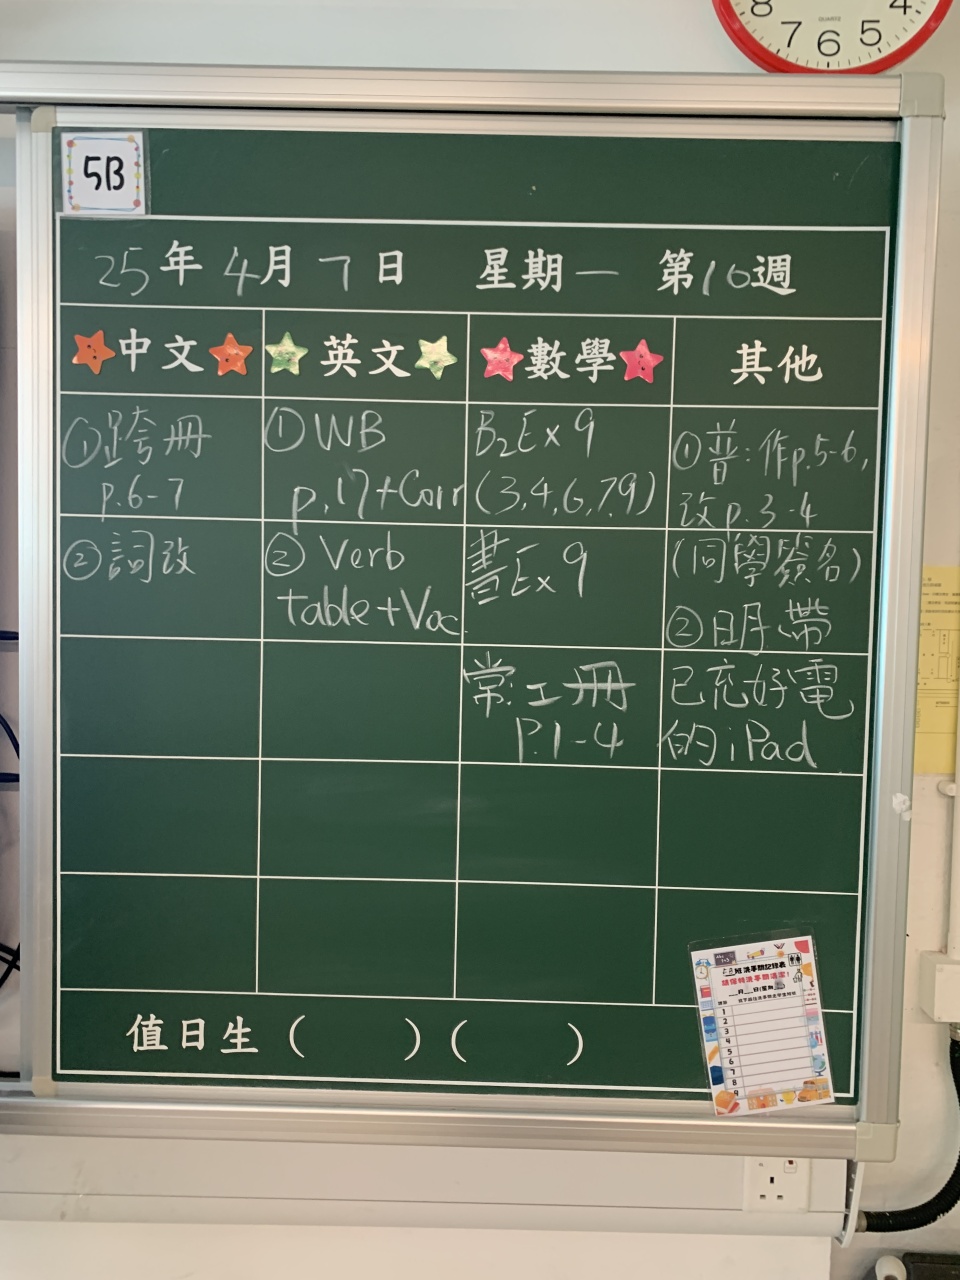 8 7 6 5 4
QUARTZ
5B
25年 4月 7日 星期一 第16週
中文 英文 數學 其他
①跨冊
p.6-7
②詞改
①WB
p.17+Corr
② Verb
table+Voc.
B₂Ex 9
(3,4,6,7,9)
書Ex 9
常:工冊
P.1-4
①普:作p.5-6,
改p.3-4
(同學簽名)
②明帶
已充好電
的iPad
值日生 ( ) ( )
1
2
3
4
5
6
7
8
9